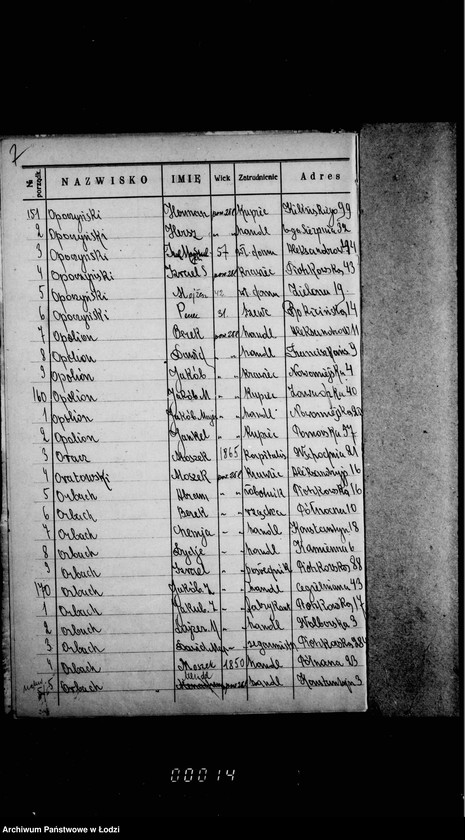 7
№ porządk. NAZWISKO IMIĘ Wiek Zatrudnienie Adres
151 Opoczyński Herman kupiec Kilińskiego 99
2 Opoczyński Hersz handl 6-go Sierpnia 32
3 Opoczyński 57 wł. domu Aleksandrow 74
4 Opoczyński Izrael S krawiec Piotrkowska 43
5 Opoczyński wł. domu Zielona 19
6 Opoczyński 31 szewc 14
7 Opolion Berek handl Aleksandrow 11
8 Opolion Dawid " " handl Franciszkańs 9
9 Opolion Jakób " " krawiec Nowomiejsk. 4
160 Opolion Jakób M " " kupiec Zawiszka 40
1 Opolion Jakób Majer " " handl Nowomiejska 20
2 Opolion Jankel " " kupiec 37
3 Oracz Moszek 1865 kapitalis Wschodnia 21
4 Oratowski Moszek krawiec Aleksandryjs 16
5 Orbach Abram " " robotnik Piotrkowska 16
6 Orbach Berek " " rządca Północna 10
7 Orbach Chemja " " handl Konstantyn 18
8 Orbach " " handl Kamienna 6
9 Orbach Izrael " " pośrednik Piotrkowska 88
170 Orbach Jakób I " " handl Cegielniana 43
1 Orbach Jakub I " " fabrykant Piotrkowska 17
2 Orbach Lajzer M " " handl Wolborska 9
3 Orbach Dawid " " zegarmistrz Piotrkowska
4 Orbach Moszek 1850 handl Północna 23
5 Orbach handl Konstantyn 3
00014
Archiwum Państwowe w Łodzi